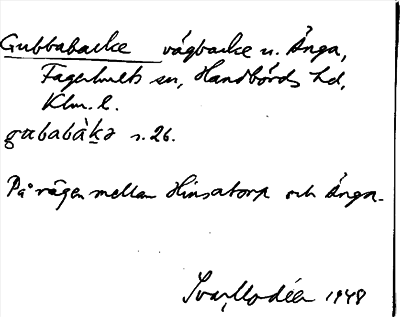 Gubbabacke vägbacke n. Änga,
Fagerhults sn, Handbörds hd,
Klm. l.
gubabàkə s. 26.
På vägen mellan Hinsatorp och Änga.
Ivar Modéer 1948